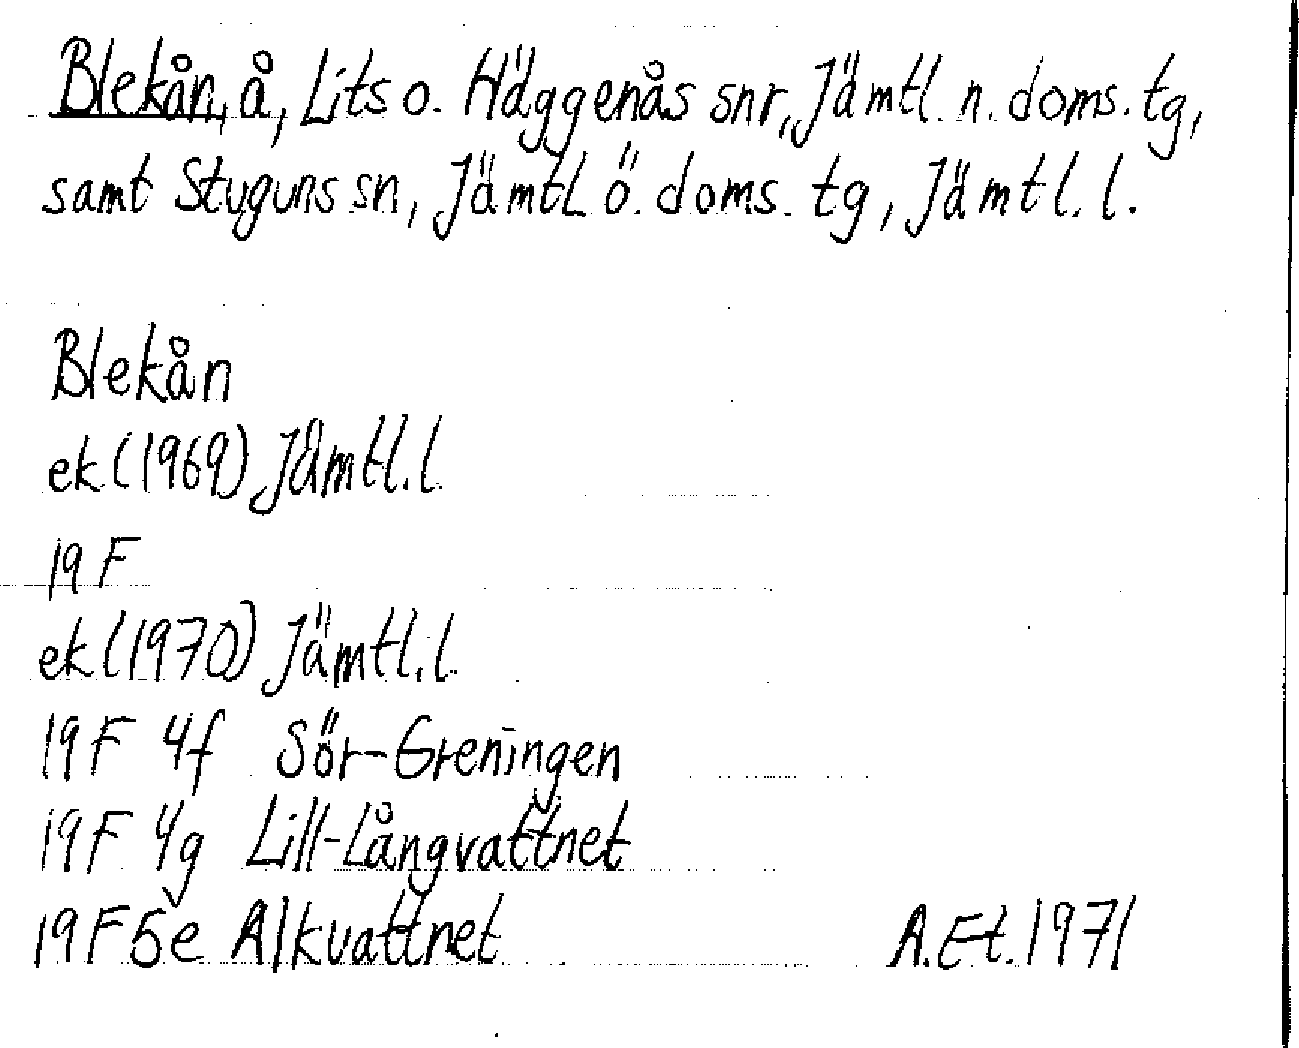 Blekån, å, Lits o. Häggenås snr, Jämtl. n. doms. tg,
samt Stuguns sn, Jämtl. ö. doms. tg, Jämtl. l.
Blekån
ek (1969) Jämtl. l.
19 F
ek (1970) Jämtl. l.
19 F 4f Sör-Greningen
19 F 4g Lill-Långvattnet
19 F 5e Alkvattnet A.Et. 1971